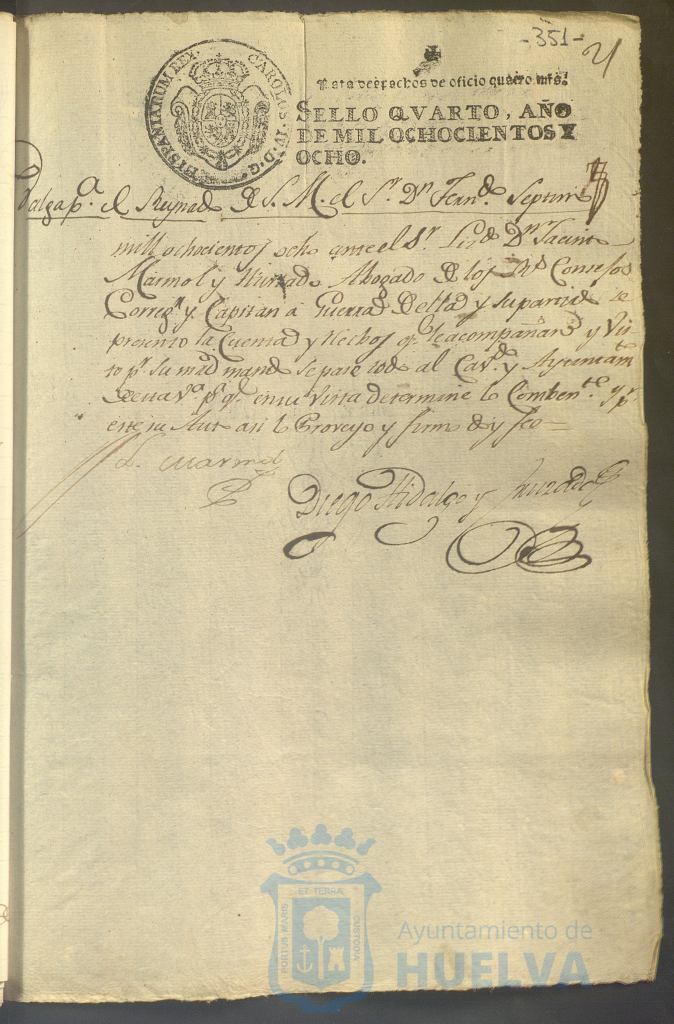 -351-
21
HISPANIARUM REX. CAROLUS. IV. D. G.
Para despachos de oficio quatro mrs.
SELLO QVARTO, AÑO
DE MIL OCHOCIENTOS Y
OCHO.
Valga pa. el Reynado de S. M. el Sr. Dn. Ferndo. Septimo
mill ochocientos ocho ante el Sr. Licdo. Dn. Jacinto
Marmol y Hurtado Abogado de los Rs. Consejos
Corregr. y Capitan a Guerra de esta y su partido se
presento la Cuenta y Rechos qe. le acompañan y vis
to pr. su mrd. mando se pase todo al Cavdo. y Ayuntamto.
de esta va. pa. qe. en su vista determine lo Combente. y pr.
este su Auto asi lo Proveyo y firmo doy feo
L. Marmol
Diego Hidalgo y Hurtado
PORTUS MARIS ET TERRAE CUSTODIA
Ayuntamiento de
HUELVA